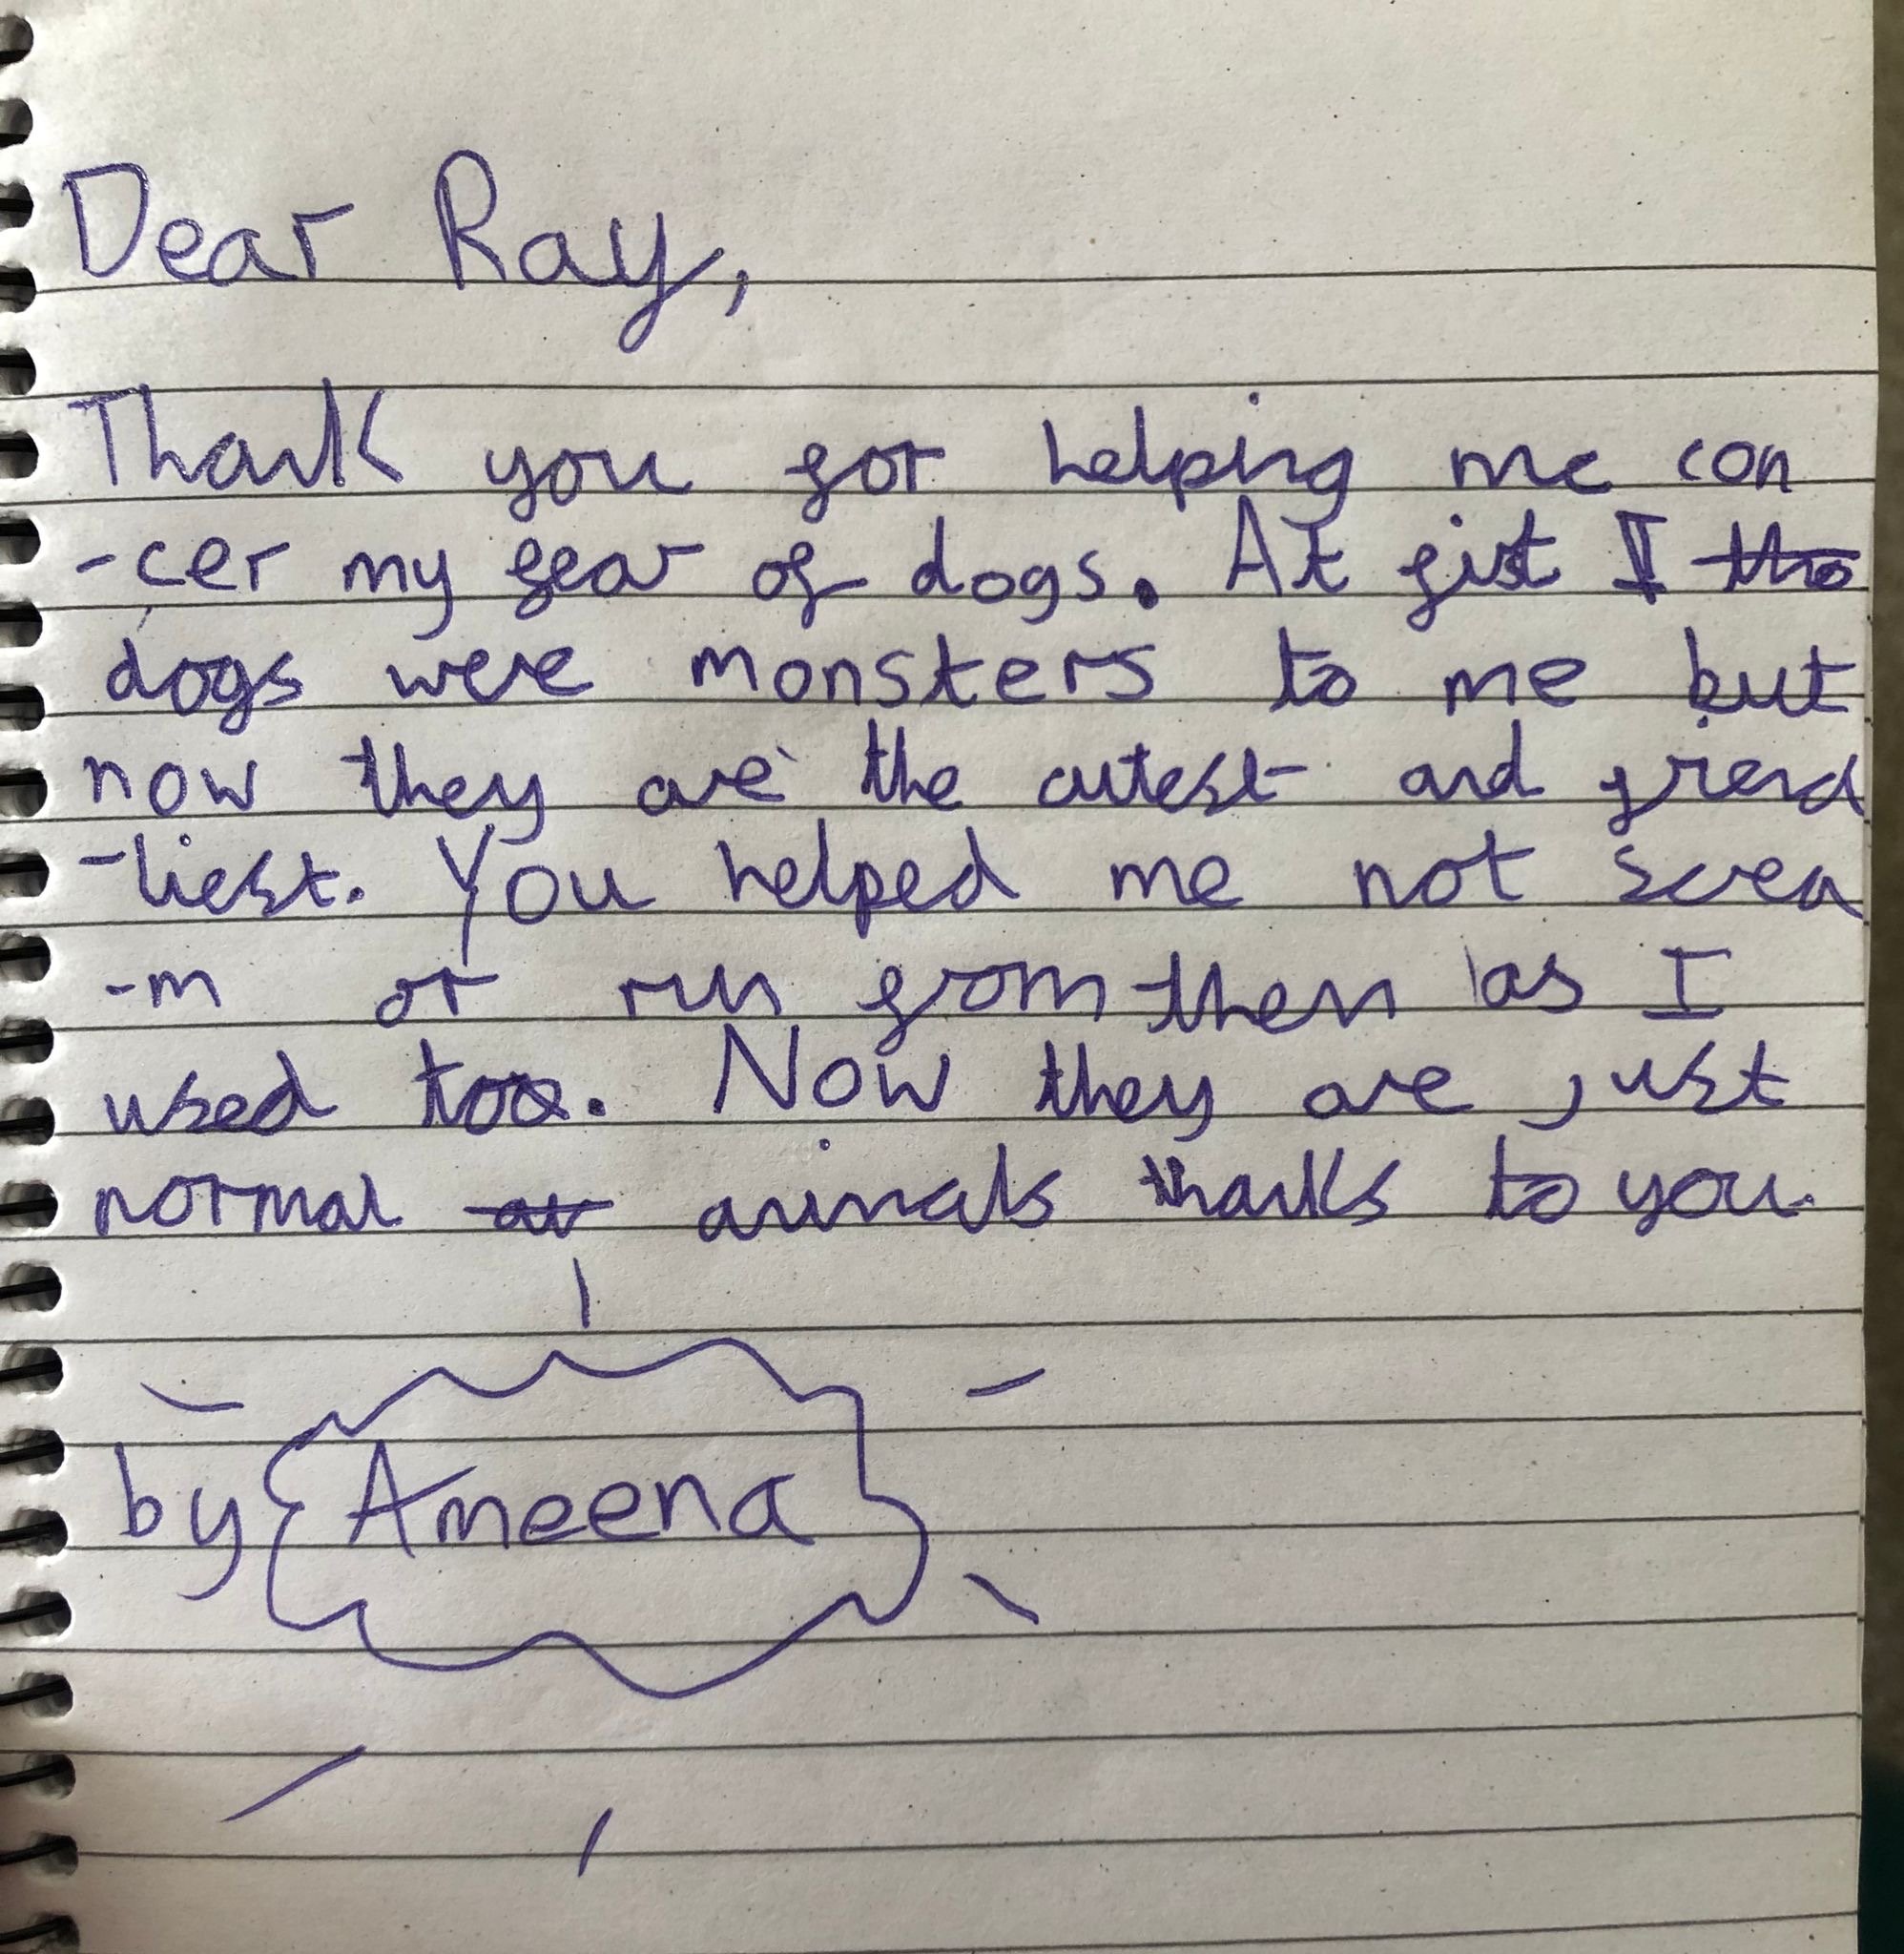 Dear Ray,
Thank you for helping me con
-cer my fear of dogs. At fist I tho
dogs were monsters to me but
now they are the cutest and friend
-liest. You helped me not screa
-m or run from them as I
used too. Now they are just
normal an animals thanks to you.
by Ameena